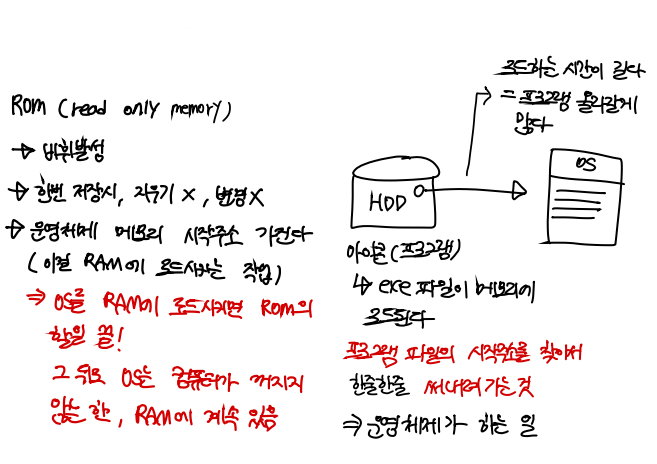 ROM (read only memory)
→ 비휘발성
→ 한번 저장시, 지우기 X, 변경 X
→ 운영체제 메모리 시작주소 가진다
(이걸 RAM에 로드시키는 작업)
⇒ OS를 RAM에 로드시키면 ROM의
할일 끝!
그 뒤로 OS는 컴퓨터가 꺼지지
않는 한, RAM에 계속 있음
로드하는 시간이 길다
= 프로그램 올라갈게
많다
HDD
OS
아이콘(프로그램)
↳ exe 파일이 메모리에
로드된다
프로그램 파일의 시작주소를 찾아서
한줄한줄 써내려 가는 것
⇒ 운영체제가 하는 일